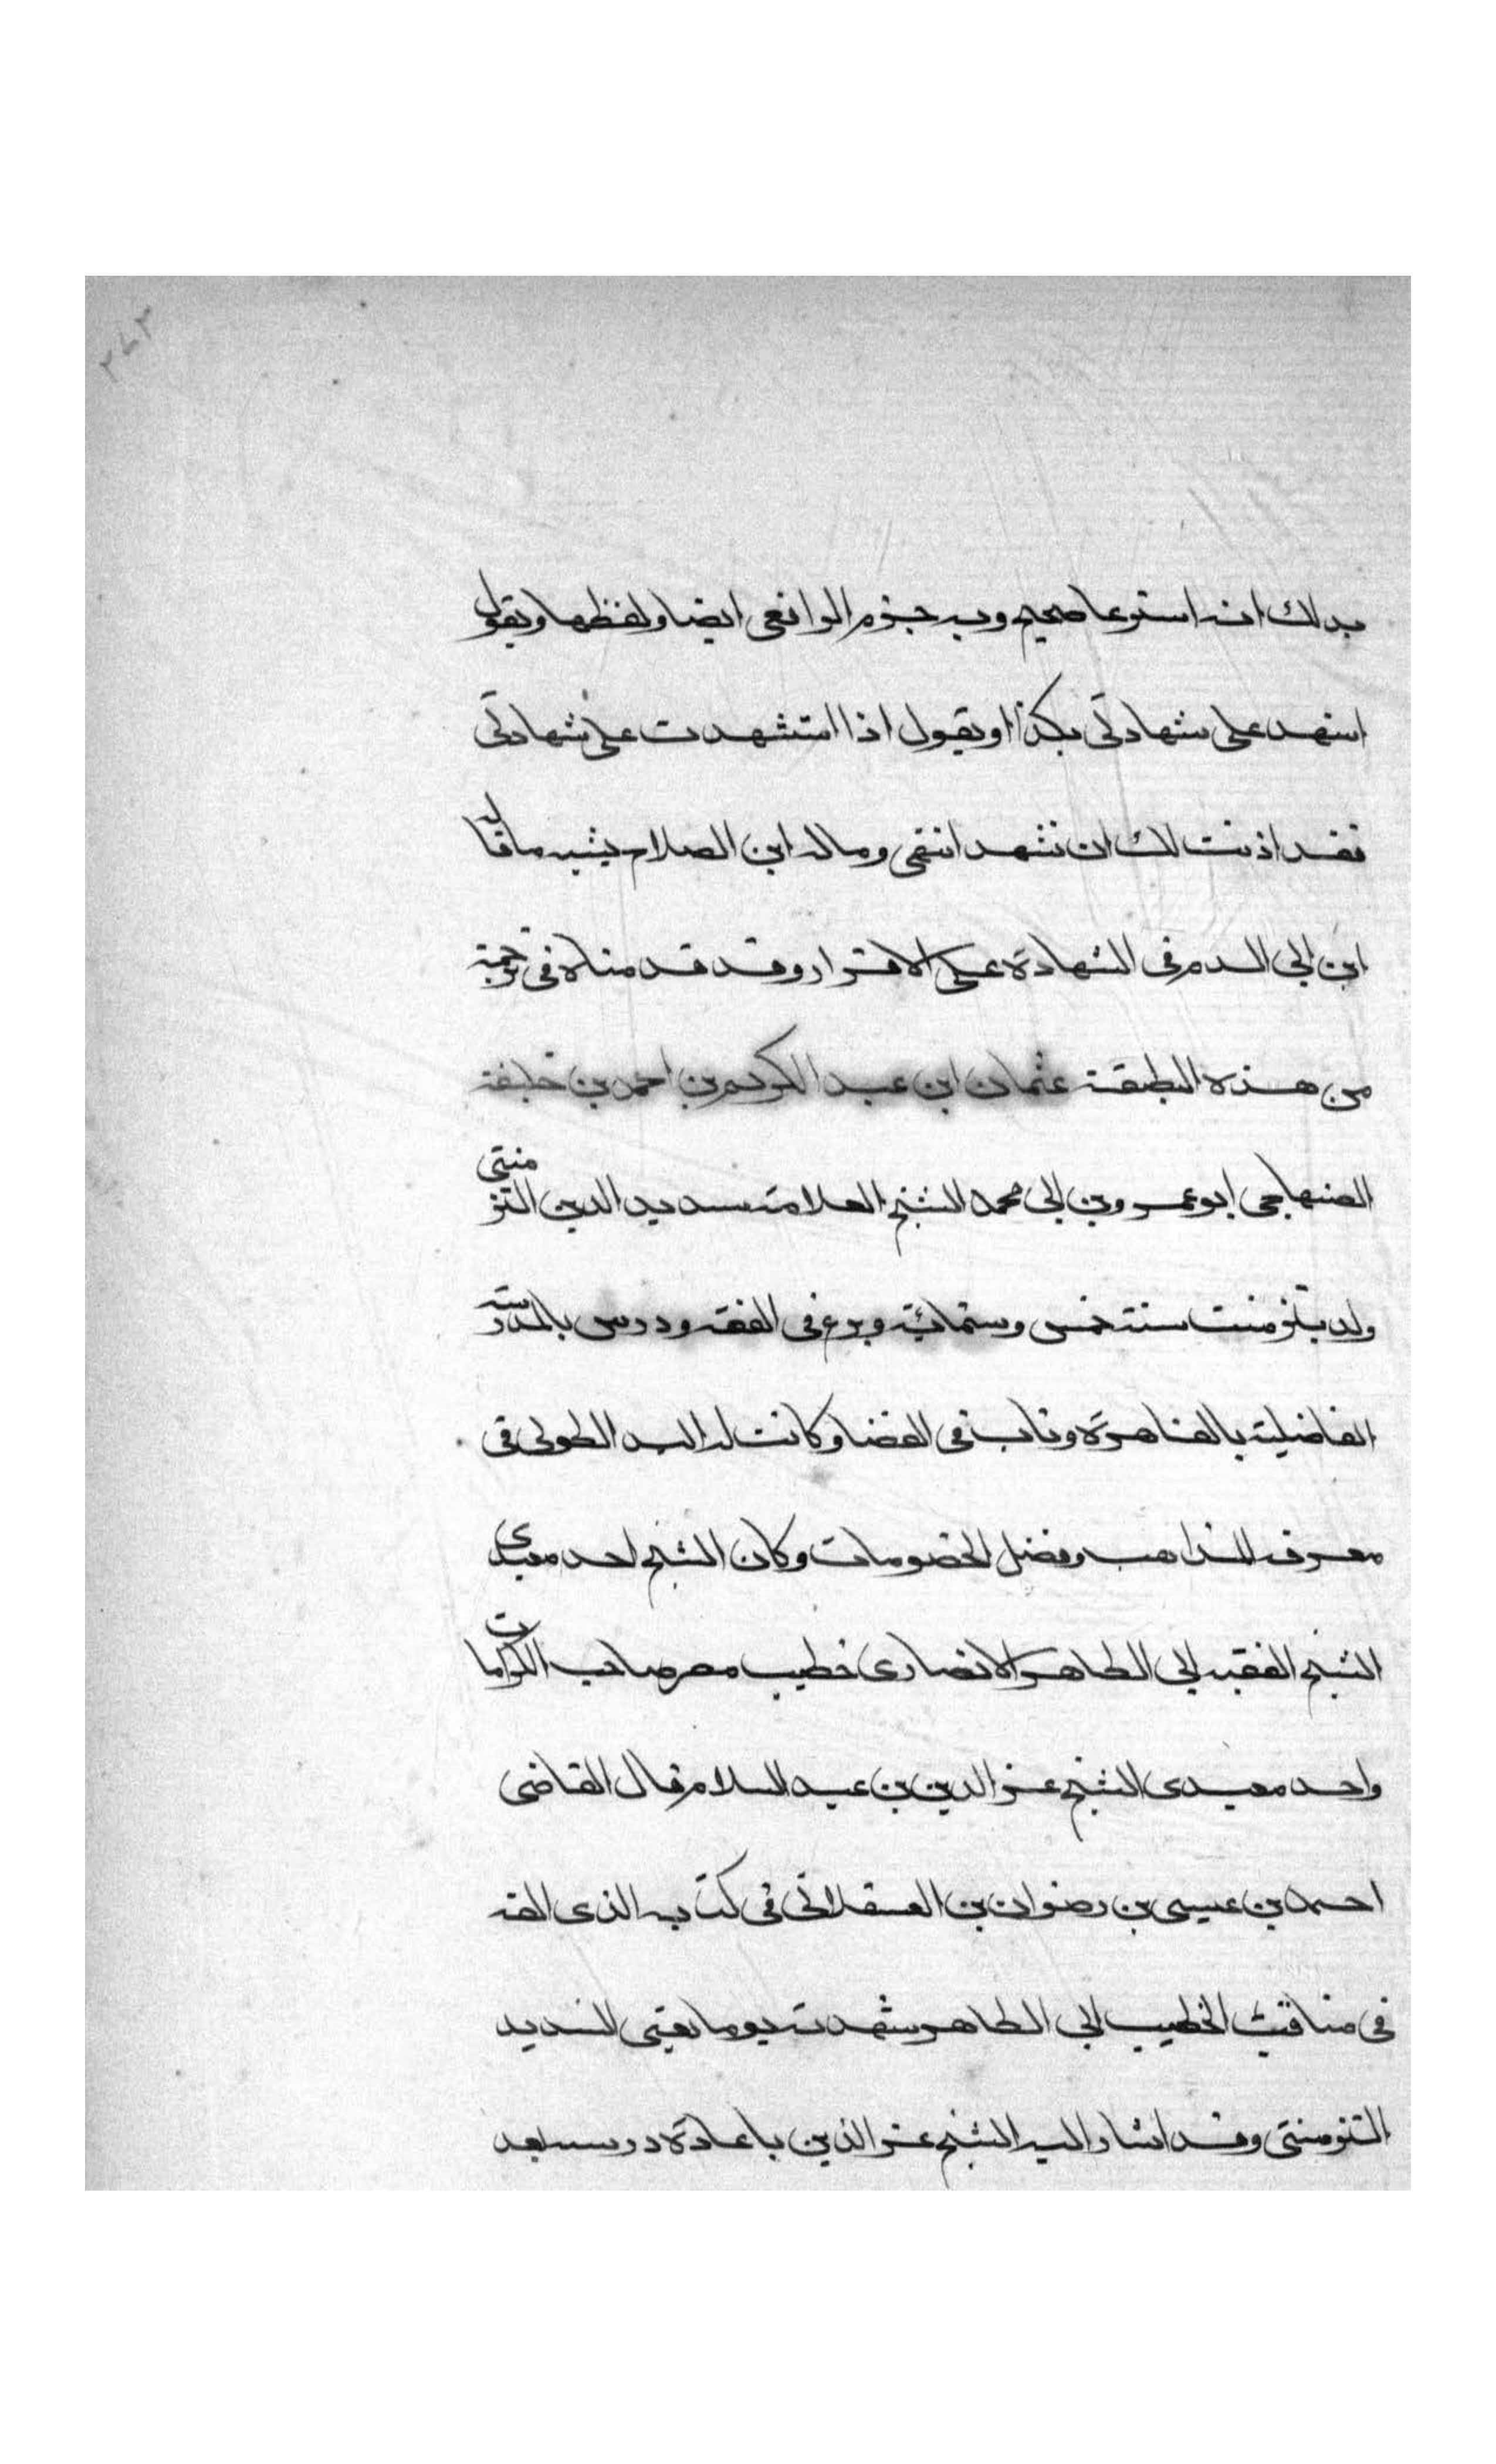 ٢٧٢
بذلك انه استرعا صحيح وبه جزم الرافعى ايضا ولفظهما ويقول
اشهد على شهادتى بكذا او يقول اذا استشهدت على شهادتى
فقد اذنت لك ان تشهد انتهى وما له ابن الصلاح يشبه ما قاله
ابن ابى الدم فى الشهادة على الاقرار وقد قدمناه فى ترجمته
من هذه الطبقة عثمان ابن عبد الكريم بن احمد بن خليفة
الصنهاجى ابو عمرو بن ابى محمد الشيخ العلامة سديد الدين التزمنتى
ولد بتزمنت سنة خمس وستمائة وبرع فى الفقه ودرس بالمدرسة
الفاضلية بالقاهرة وناب فى القضا وكانت له اليد الطولى فى
معرفة المذاهب وفضل الخصومات وكان الشيخ احد معيدى
الشيخ الفقيه ابى الطاهر الانصارى خطيب مصر صاحب الكرامات
واحد معيدى الشيخ عز الدين بن عبد السلام قال القاضى
احمد بن عيسى بن رضوان بن العسقلانى فى كتابه الذى الفه
فى مناقب الخطيب ابى الطاهر شهدت يوما يعنى السديد
التزمنتى وقد اشار اليه الشيخ عز الدين باعادة درسه بعد